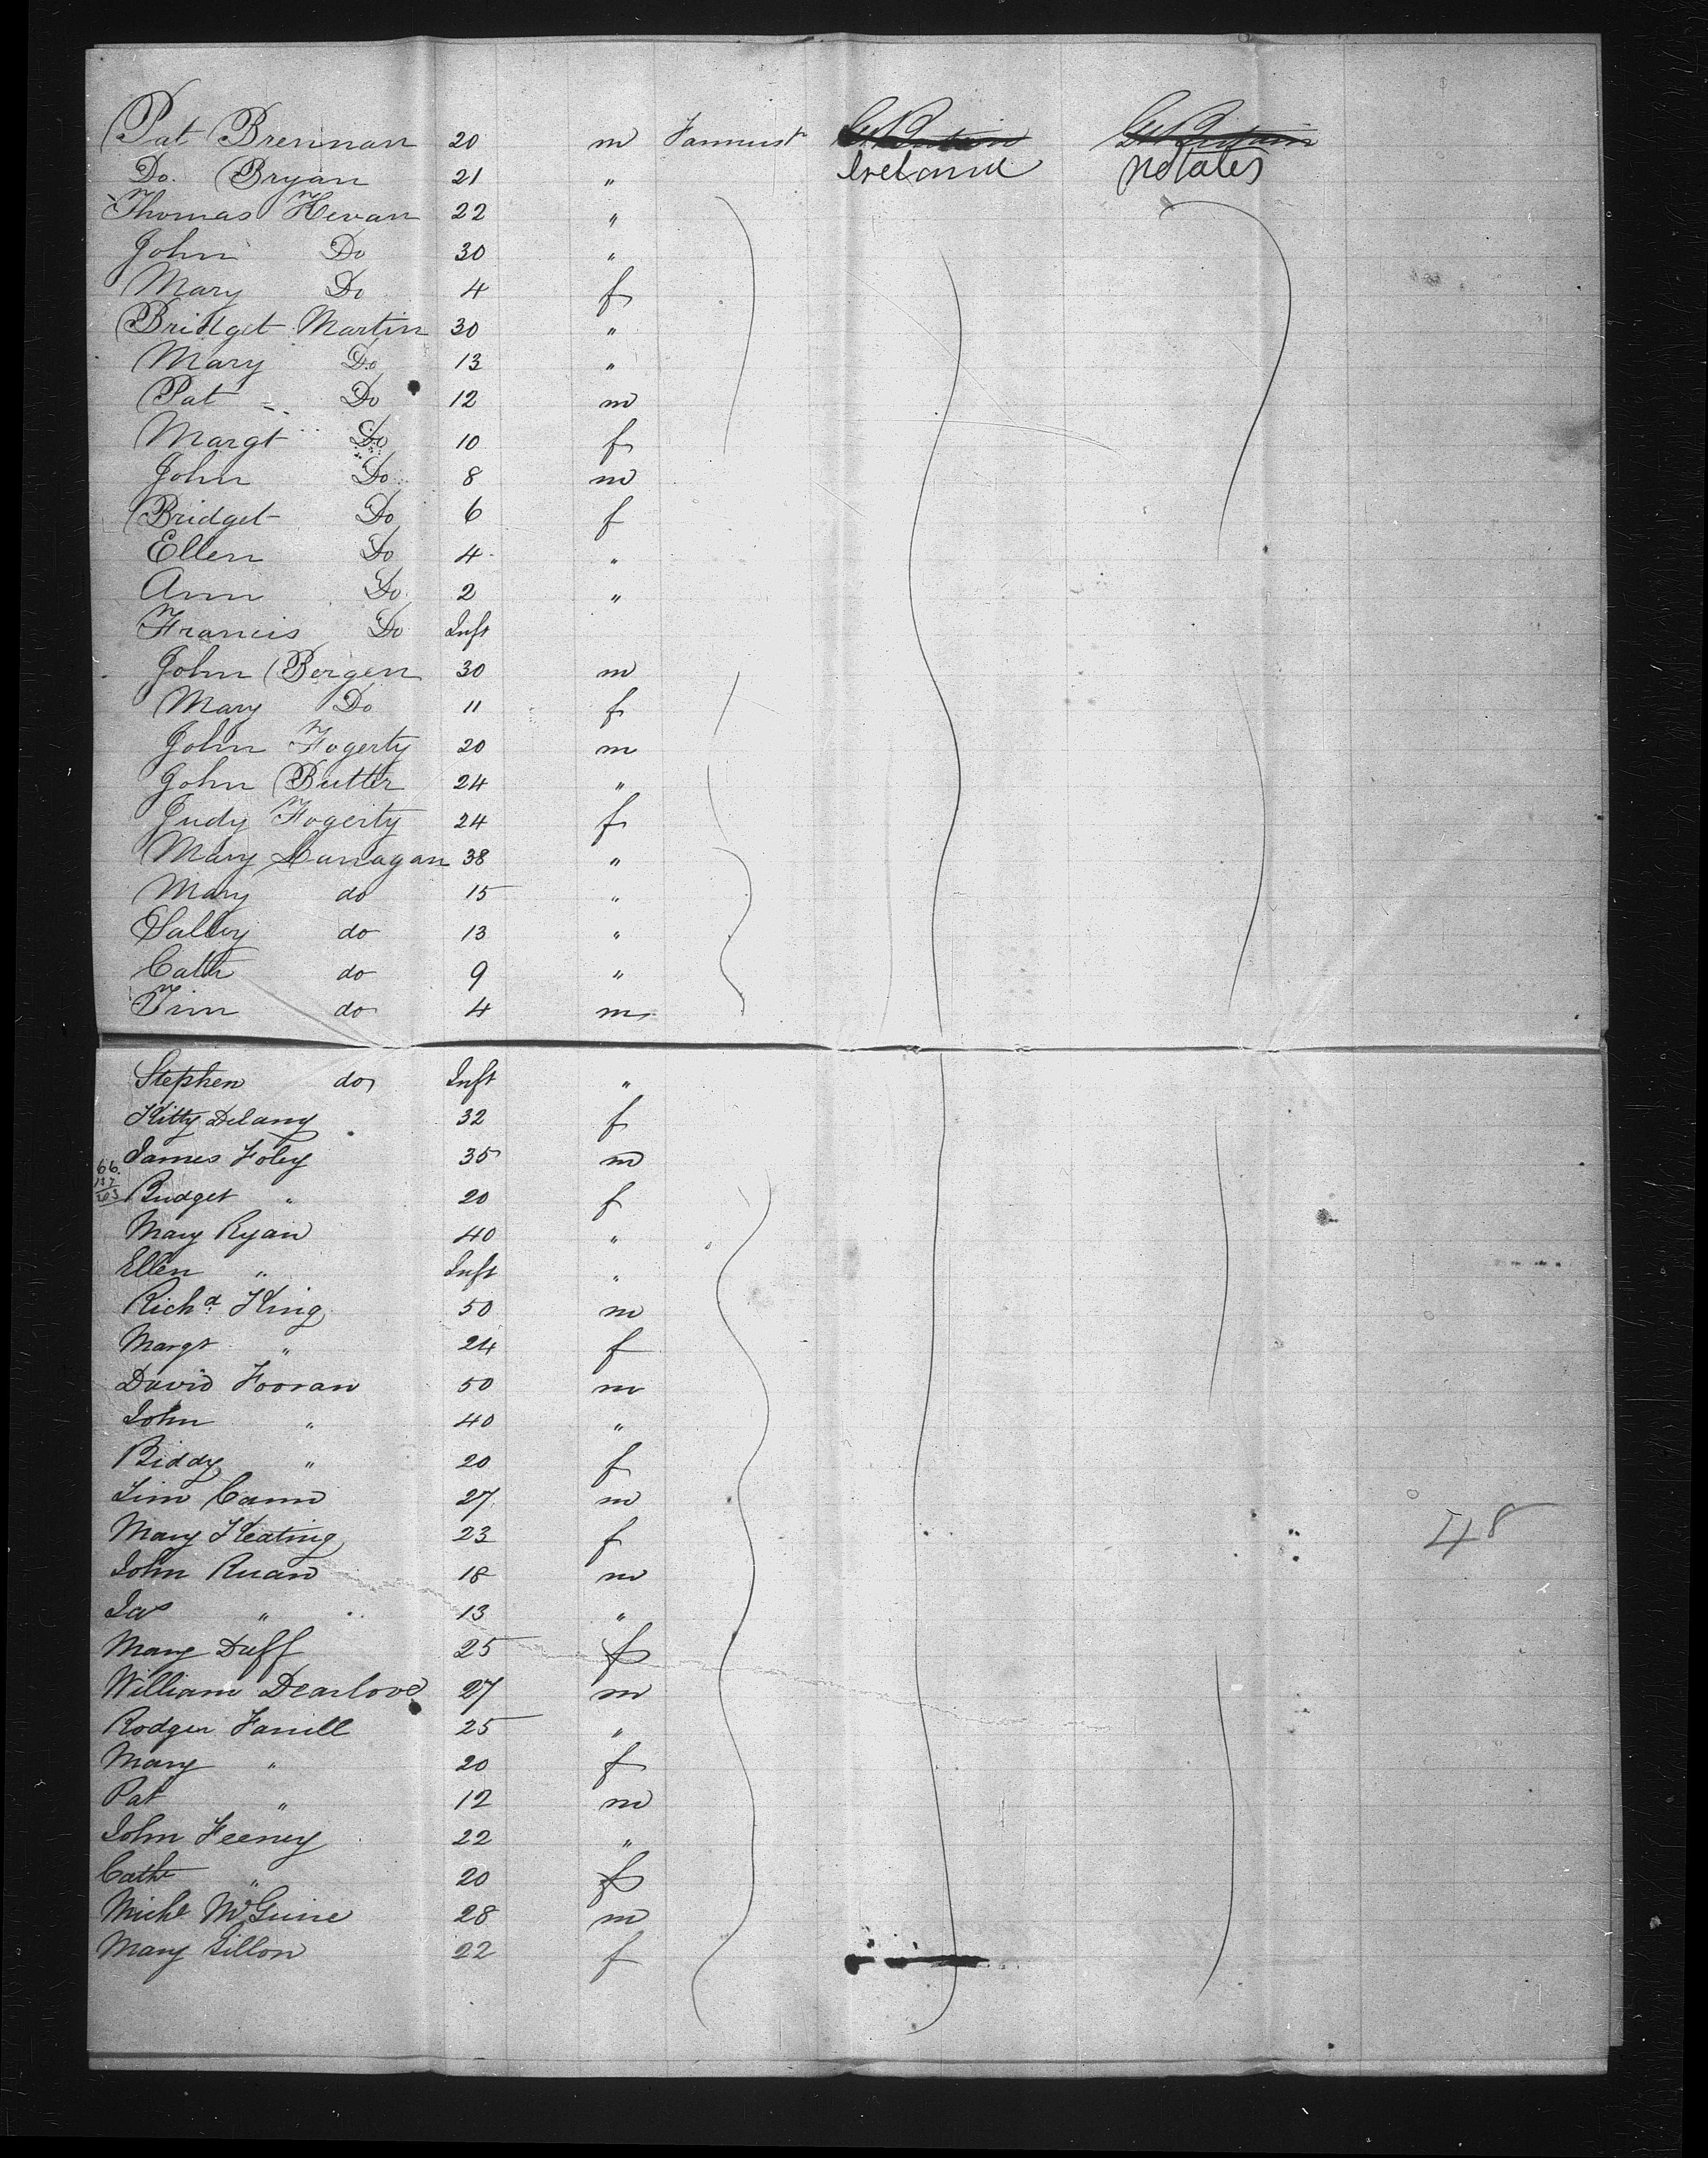 Pat Brennan 20 m Farmust Gt Britain Gt Britain
Ireland
Do. Bryan 21 " Ustates
Thomas Hevan 22 "
John Do 30 "
Mary Do 4 f
Bridget Martin 30 "
Mary Do 13 "
Pat Do 12 m
Margt Do 10 f
John Do 8 m
Bridget Do 6 f
Ellen Do 4 "
Ann Do 2 "
Francis Do Inft
John Bergen 30 m
Mary Do 11 f
John Fogerty 20 m
John Butler 24 "
Judy Fogerty 24 f
Mary Lanagan 38 "
Mary do 15 "
Sally do 13 "
Cath do 9 "
Tim do 4 m
Stephen do Inft "
Kitty Delany 32 f
James Foley 35 m
66.
137
203
Bridget " 20 f
Mary Ryan 40 "
Ellen " Inft "
Richd King 50 m
Margt " 24 f
David Fooran 50 m
John " 40 "
Biddy " 20 f
Tim Cann 27 m
Mary Keating 23 f 48
John Ruan 18 m
Jas " 13 "
Mary Duff 25 f
William Dearlove 27 m
Rodger Farrill 25 "
Mary " 20 f
Pat " 12 m
John Feeney 22 "
Cath " 20 f
Michl McGuire 28 m
Mary Gillon 22 f